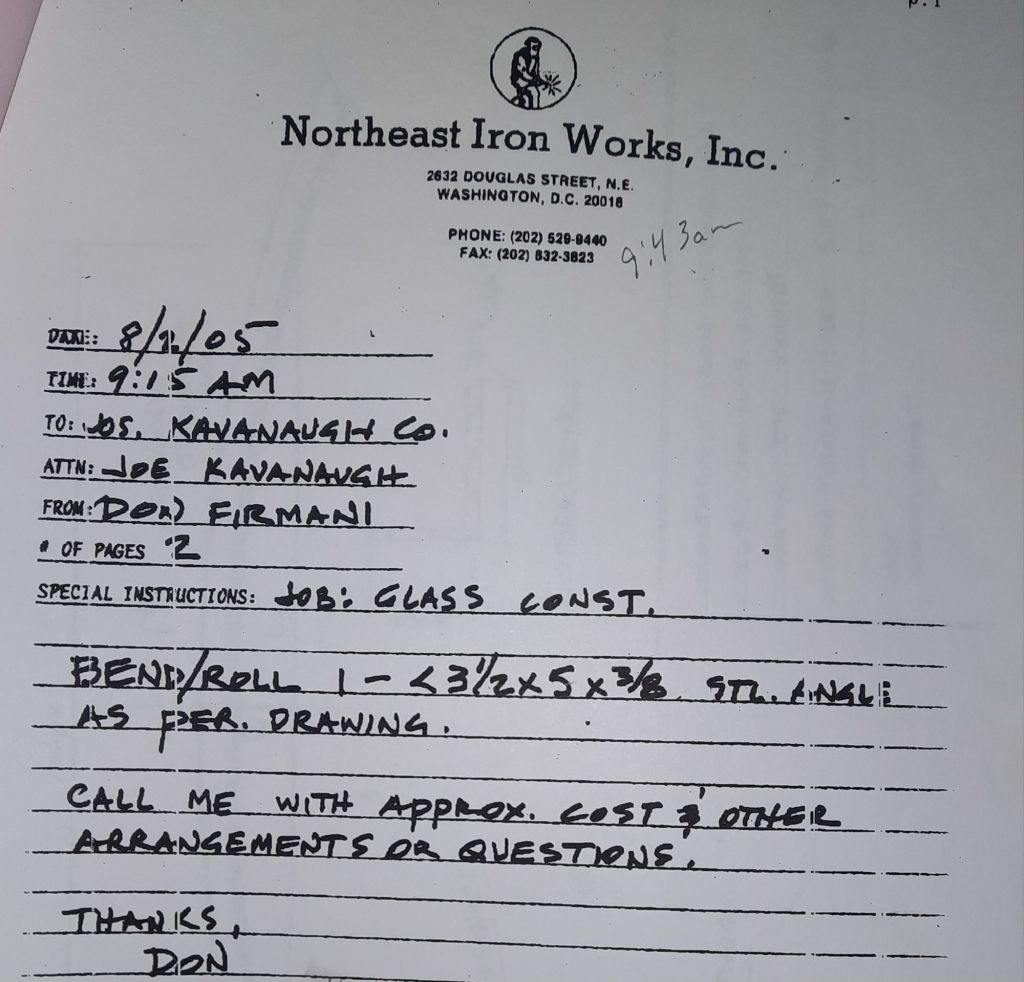 p.1
Northeast Iron Works, Inc.
2632 DOUGLAS STREET, N.E.
WASHINGTON, D.C. 20018
PHONE: (202) 529-9440
FAX: (202) 832-3823
9:43am
DATE: 8/12/05
TIME: 9:15 AM
TO: JOS. KAVANAUGH CO.
ATTN: JOE KAVANAUGH
FROM: DON FIRMANI
# OF PAGES 2
SPECIAL INSTRUCTIONS: JOB: GLASS CONST.
BEND/ROLL 1 - < 3 1/2 x 5 x 3/8 STL. ANGLE
AS PER. DRAWING.
CALL ME WITH APPROX. COST & OTHER
ARRANGEMENTS OR QUESTIONS.
THANKS,
DON